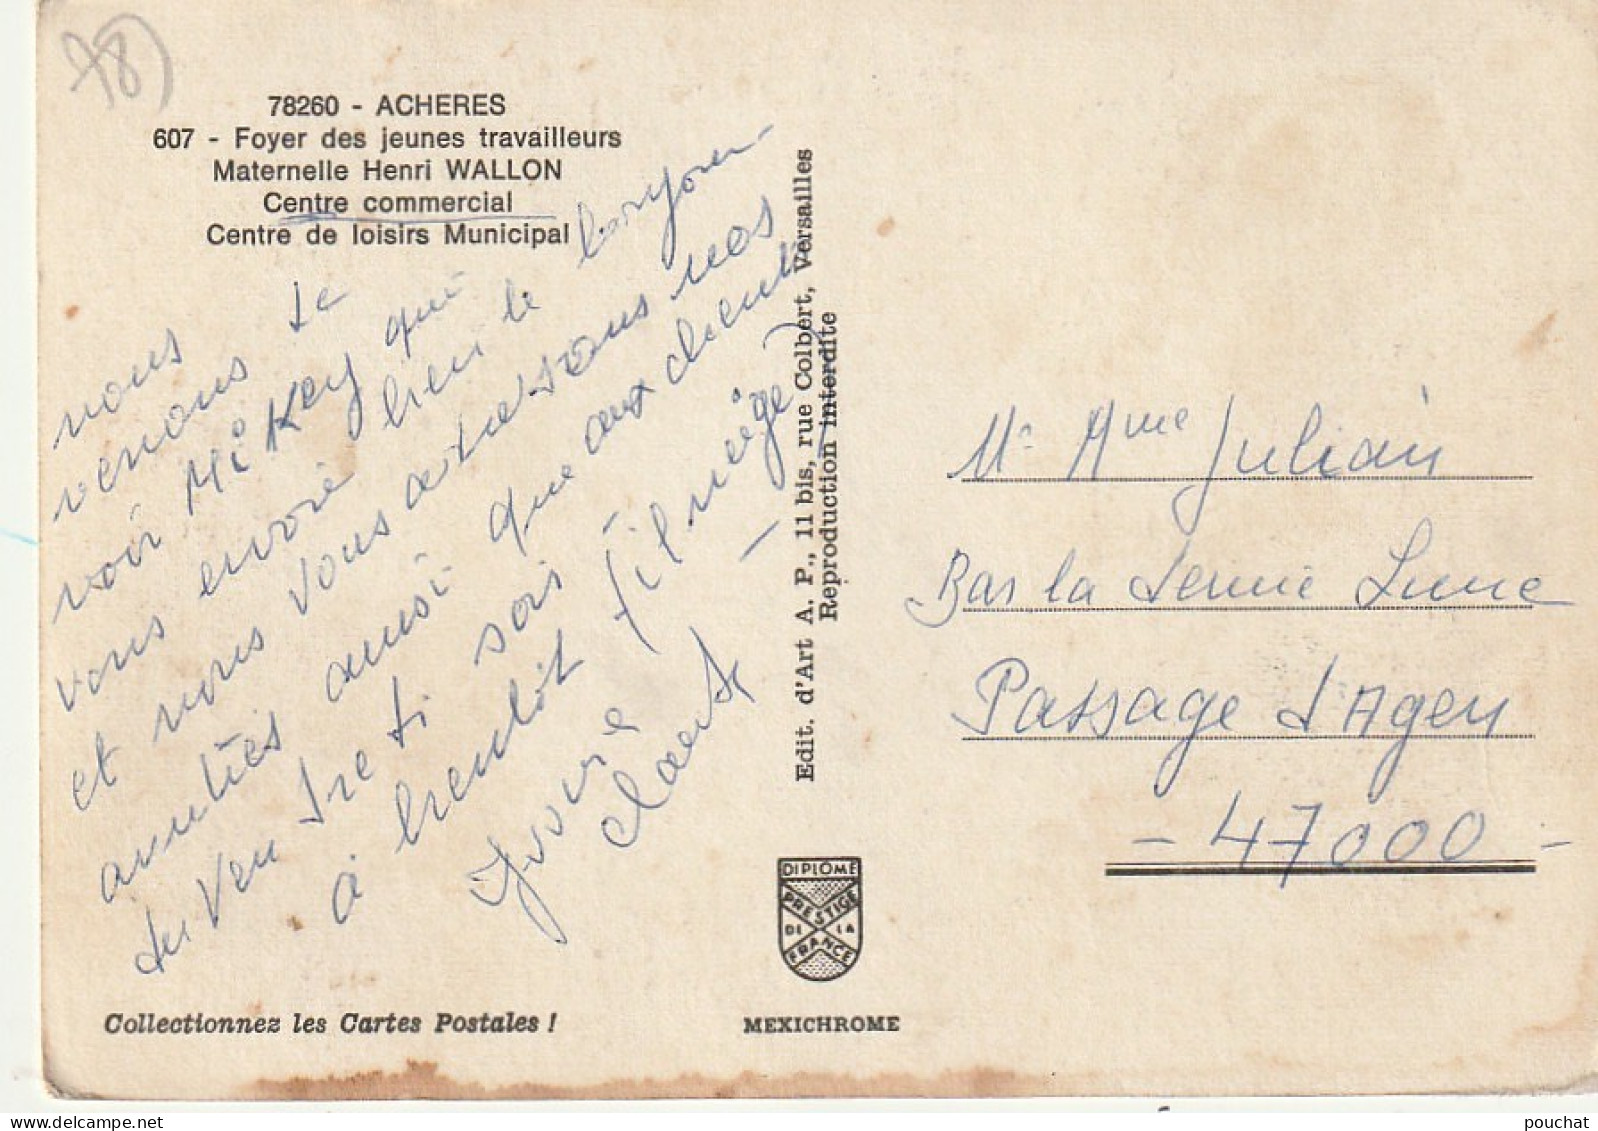 78)
78260 - ACHERES
607 - Foyer des jeunes travailleurs
Maternelle Henri WALLON
Centre commercial
Centre de loisirs Municipal
nous
venons de
voir MiKey qui
vous envoie bien le bonjour
et nous vous adressons nos
amitiés ainsi que aux clients
du Ven dre di soir
à bientôt (il neige)
Collectionnez les Cartes Postales !
Edit. d'Art A. P., 11 bis, rue Colbert, Versailles
Reproduction interdite
DIPLOME
PRESTIGE
DE LA
FRANCE
MEXICHROME
Mr Mme Julian
Bar la demie Lune
Passage d'Agen
- 47000 -
pouchat